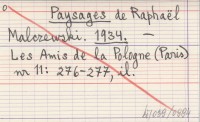 Paysages de Raphaël
Malczewski. 1934. —
Les Amis de la Pologne (Paris)
nr 11: 276-277, il.